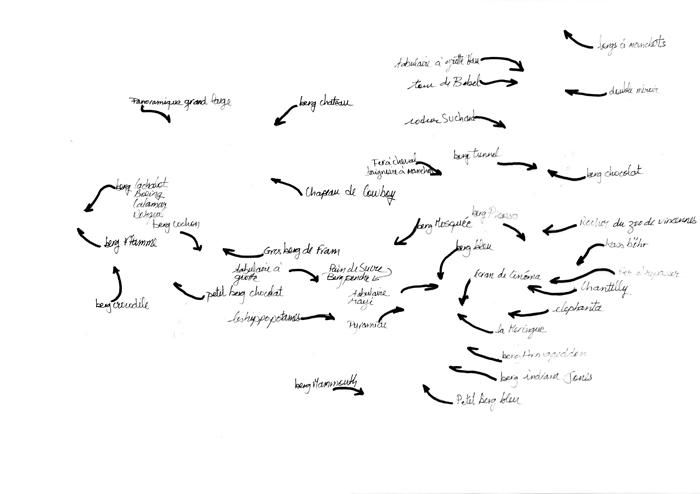 bergs à manchots
tabulaire à
tour de Babel
double miroir
Panoramique grand large
berg chateau
rocher Suchard
berg tunnel
Fer à cheval
baignoire à manchots
berg chocolat
berg cachalot
Boeing
Calamar
Chapeau de Cowboy
berg cochon
berg Picasso
berg Mosquée
Rocher du zoo de vincennes
berg Flamme
berg bleu
Gros berg de Fram
Pain de Sucre
Berg pendu
tabulaire à
grotte
Ecran de Cinéma
Chantilly
tabulaire
rayé
petit berg chocolat
berg crocodile
elephanta
les hyppopotames
Pyramide
la Meringue
berg Armageddon
berg indiana Jones
berg Mammouth
Petit berg bleu